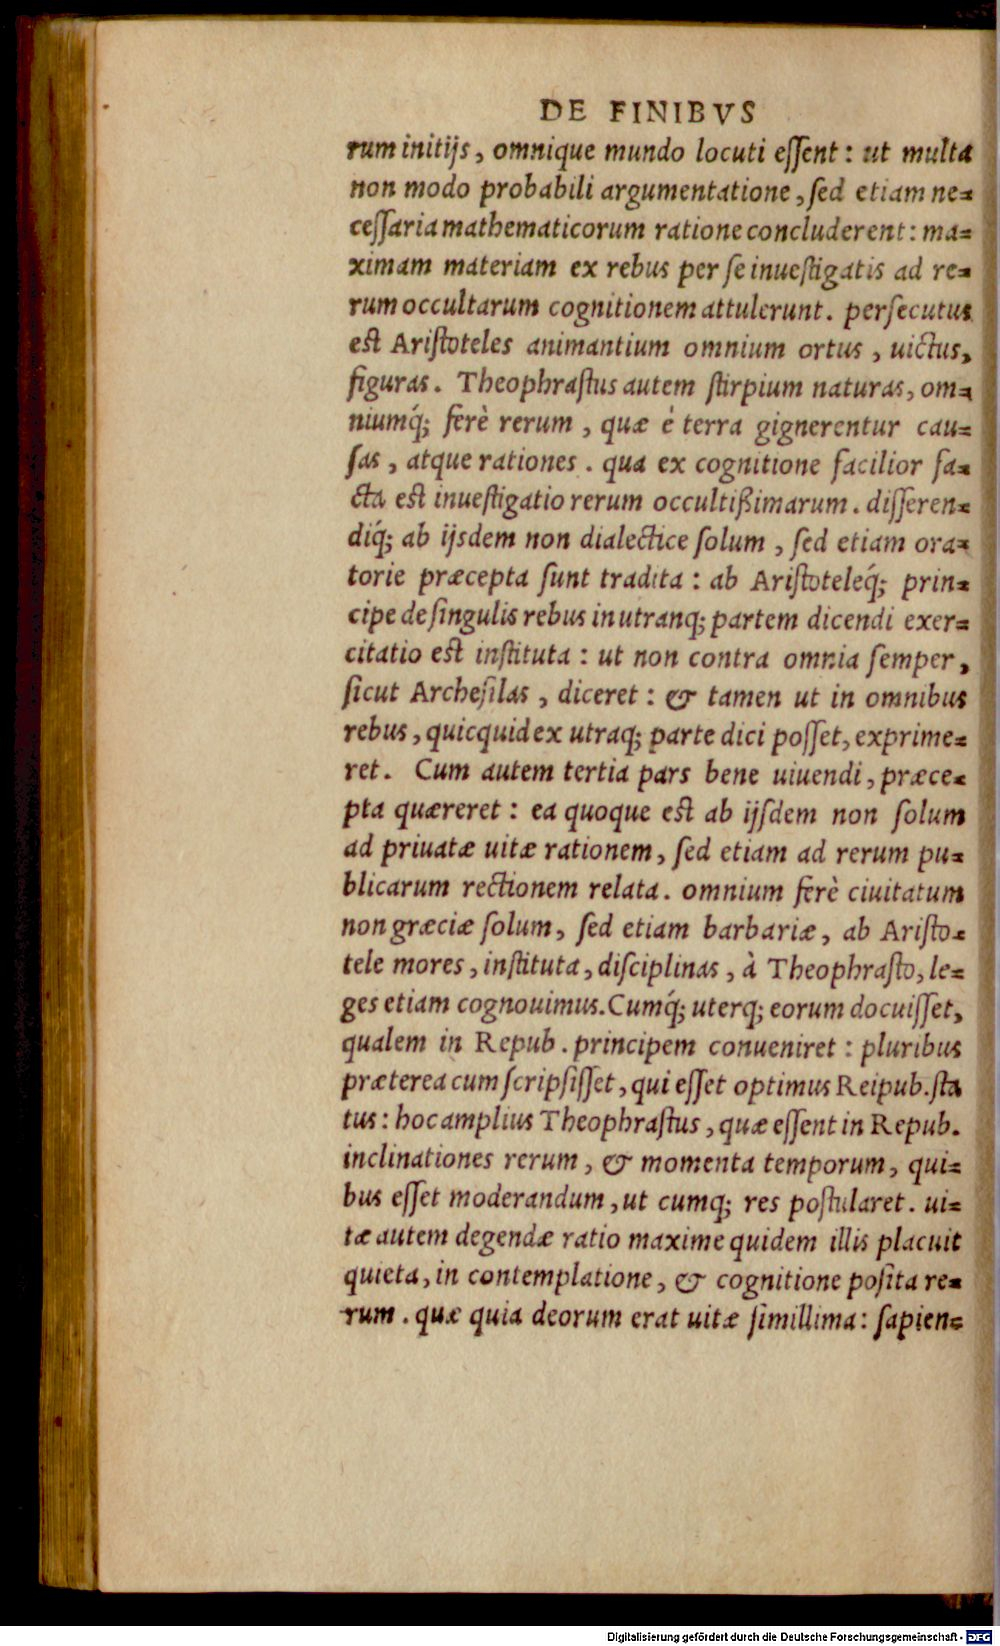 DE FINIBVS
rum initijs, omnique mundo locuti eſſent: ut multa
non modo probabili argumentatione, ſed etiam ne=
ceſſaria mathematicorum ratione concluderent: ma=
ximam materiam ex rebus per ſe inueſtigatis ad re=
rum occultarum cognitionem attulerunt. perſecutus
eſt Ariſtoteles animantium omnium ortus, uictus,
figuras. Theophraſtus autem ſtirpium naturas, om=
niumq́; ferè rerum, quæ è terra gignerentur cau=
ſas, atque rationes. qua ex cognitione facilior fa=
cta eſt inueſtigatio rerum occultißimarum. diſſeren=
diq́; ab ijsdem non dialectice ſolum, ſed etiam ora=
torie præcepta ſunt tradita: ab Ariſtoteleq́; prin=
cipe de ſingulis rebus in utranq; partem dicendi exer=
citatio eſt inſtituta: ut non contra omnia ſemper,
ſicut Archeſilas, diceret: & tamen ut in omnibus
rebus, quicquid ex utraq; parte dici poſſet, exprime=
ret. Cum autem tertia pars bene uiuendi, præce=
pta quæreret: ea quoque eſt ab ijſdem non ſolum
ad priuatæ uitæ rationem, ſed etiam ad rerum pu=
blicarum rectionem relata. omnium ferè ciuitatum
non græciæ ſolum, ſed etiam barbariæ, ab Ariſto=
tele mores, inſtituta, diſciplinas, à Theophraſto, le=
ges etiam cognouimus. Cumq́; uterq; eorum docuiſſet,
qualem in Repub. principem conueniret: pluribus
præterea cum ſcripſiſſet, qui eſſet optimus Reipub. ſta
tus: hoc amplius Theophraſtus, quæ eſſent in Repub.
inclinationes rerum, & momenta temporum, qui=
bus eſſet moderandum, ut cumq; res poſtularet. ui=
tæ autem degendæ ratio maxime quidem illis placuit
quieta, in contemplatione, & cognitione poſita re=
rum. quæ quia deorum erat uitæ ſimillima: ſapien=
Digitalisierung gefördert durch die Deutsche Forschungsgemeinschaft - DFG